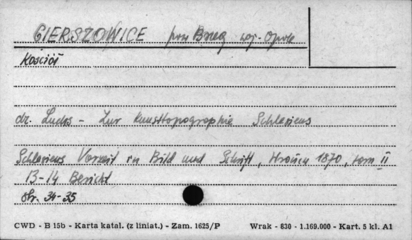 GIERSZOWICE prz Brzeg woj. Opole
Kościół
dr. Luchs - Zur Kunsttopographie Schlesiens
Schlesiens Vorzeit in Bild und Schrift, 1870, tom II
13-14 Bericht
Str. 34-35
CWD - B 15b - Karta katal. (z liniat.) - Zam. 1625/P Wrak - 830 - 1.169.000 - Kart. 5 kl. A1